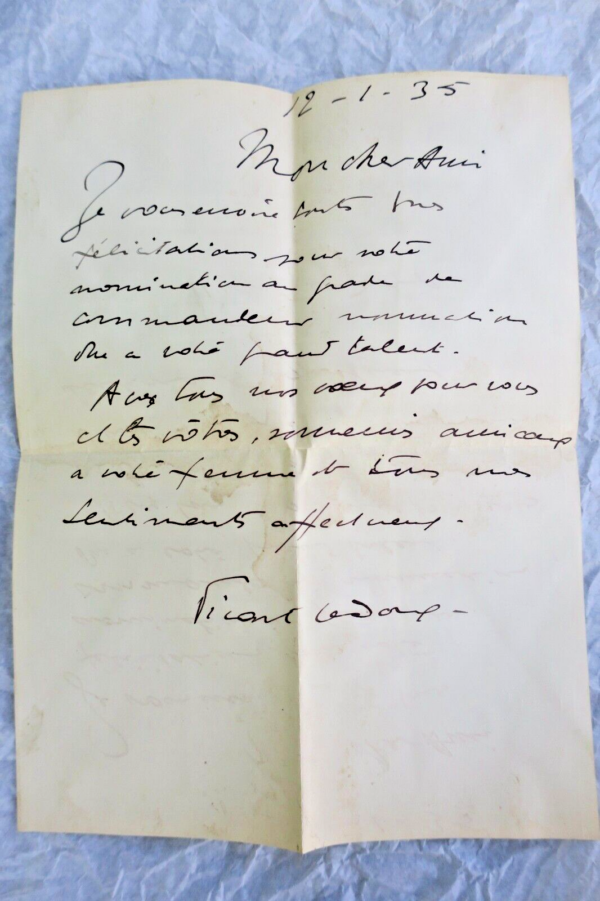 12 - 1 - 35
Mon cher Ami
Je vous envoie toutes mes
félicitations pour votre
nomination au grade de
commandeur nomination
due a votre grand talent.
Avec tous nos voeux pour vous
et les vôtres, souvenirs amicaux
a votre femme et tous nos
sentiments affectueux.
Picart Ledoux -